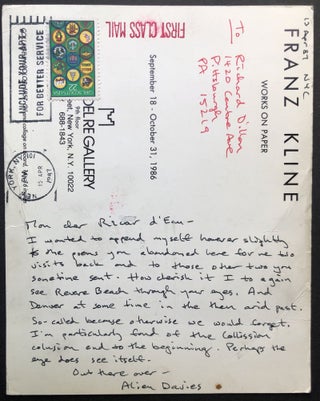 13 Apr 87 NYC
FRANZ KLINE
WORKS ON PAPER
To Richard Dillon
1420 Centre Ave
Pittsburgh
PA 15219
FIRST CLASS MAIL
September 18 - October 31, 1986
M
DEL RE GALLERY
New York, N.Y. 10022
688-1843
FOR BETTER SERVICE
Mon dear Riccar d'Eau -
I wanted to append myself however slightly
to the poems you abandoned here for me two
visits back and to those other two you
sometime sent. How cherish it I to again
see Revere Beach through your eyes. And
Denver at some time in the then arid past.
So-called because otherwise we would forget.
I'm particularly fond of the Collission
colusion end to the beginning. Perhaps the
eye does see itself.
Out here over -
Alien Davies